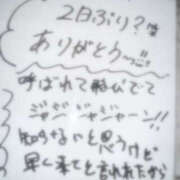 2日ぶり?
ありがとう
呼ばれて飛びでて
ジャジャジャジャーン!!
知らないと思うけど
早く来てと言われたから